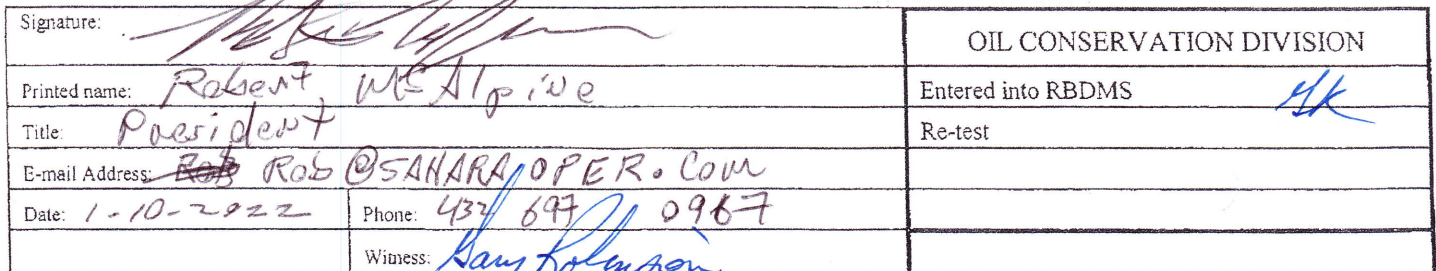 Signature:
Printed name: Robert McAlpine
Title: President
E-mail Address: Rob Rob@SAHARAOPER.Com
Date: 1-10-2022 Phone: 432 697 0967
Witness: Gary Robinson
OIL CONSERVATION DIVISION
Entered into RBDMS
Re-test